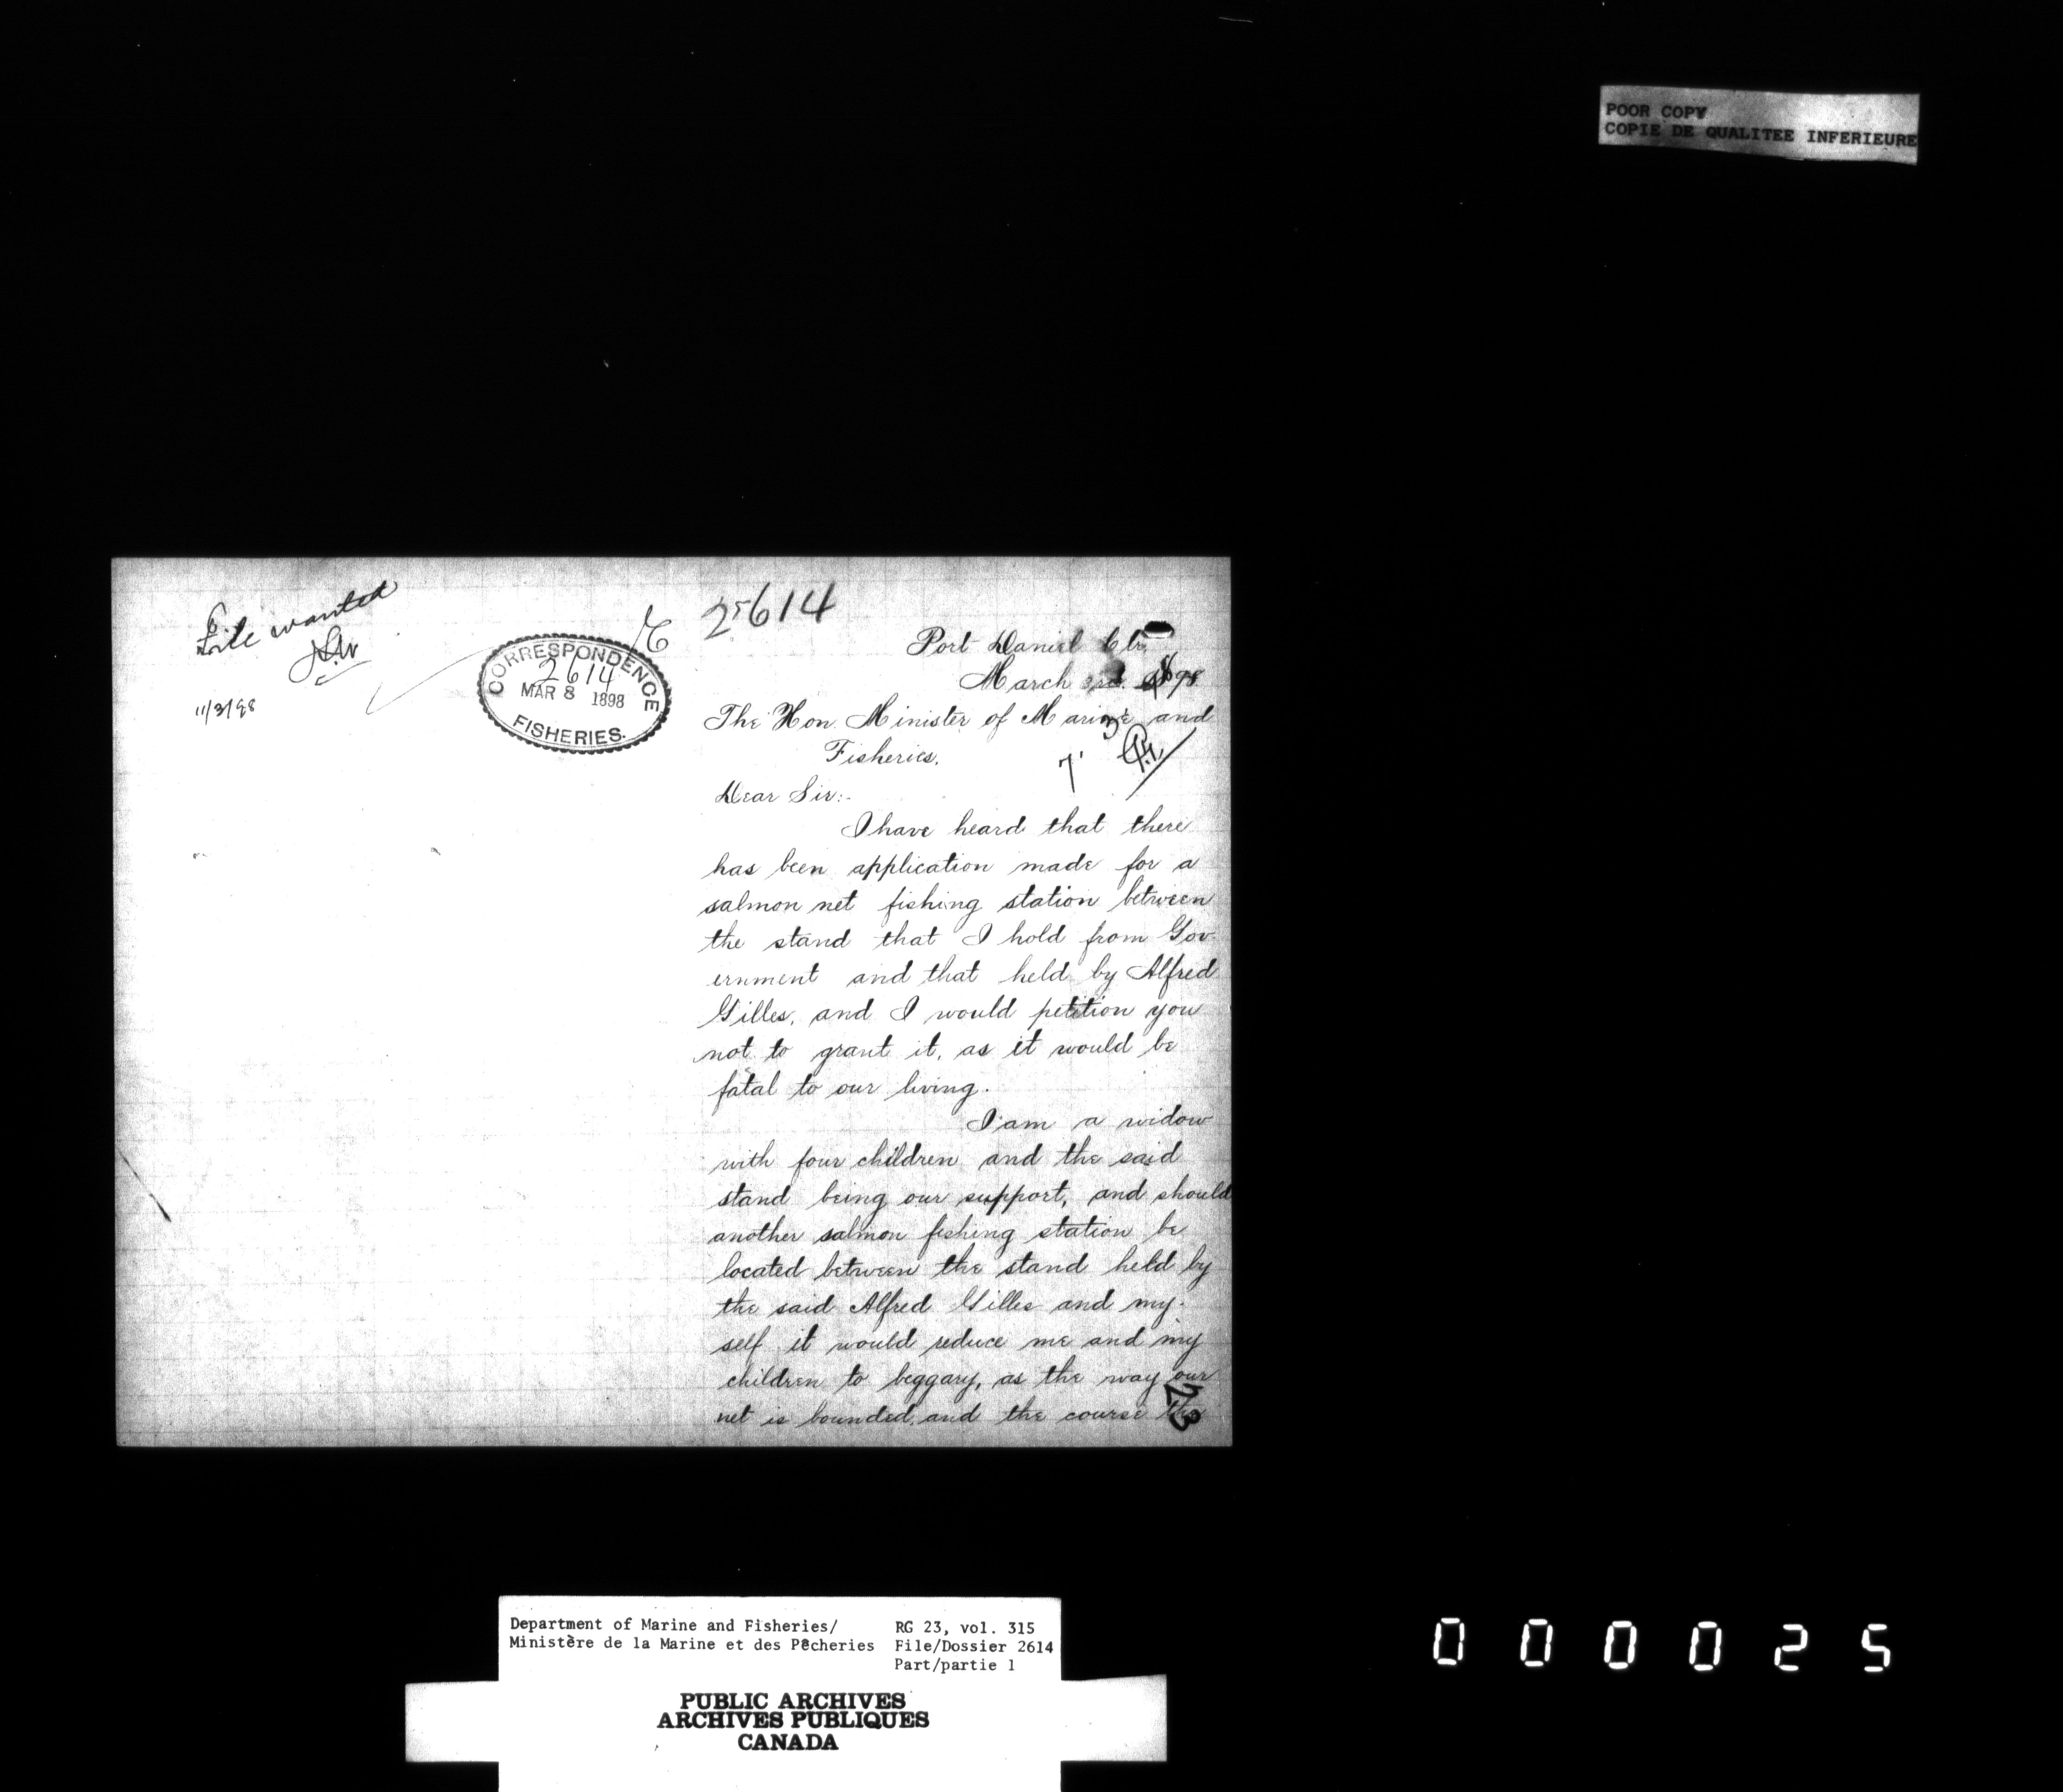 POOR COPY
COPIE DE QUALITEE INFERIEURE
File wanted
11/3/98
2614
CORRESPONDENCE
2614
MAR 8 1898
FISHERIES.
Port Daniel Ctr.
March 3rd. 1898
The Hon. Minister of Marine and
Fisheries.
Dear Sir:-
I have heard that there
has been application made for a
salmon net fishing station between
the stand that I hold from Gov-
ernment and that held by Alfred
Gilles, and I would petition you
not to grant it, as it would be
fatal to our living.
I am a widow
with four children and the said
stand being our support, and should
another salmon fishing station be
located between the stand held by
the said Alfred Gilles and my-
self it would reduce me and my
children to beggary, as the way our
net is bounded, and the course the
23
Department of Marine and Fisheries/
Ministère de la Marine et des Pêcheries
RG 23, vol. 315
File/Dossier 2614
Part/partie 1
PUBLIC ARCHIVES
ARCHIVES PUBLIQUES
CANADA
000025